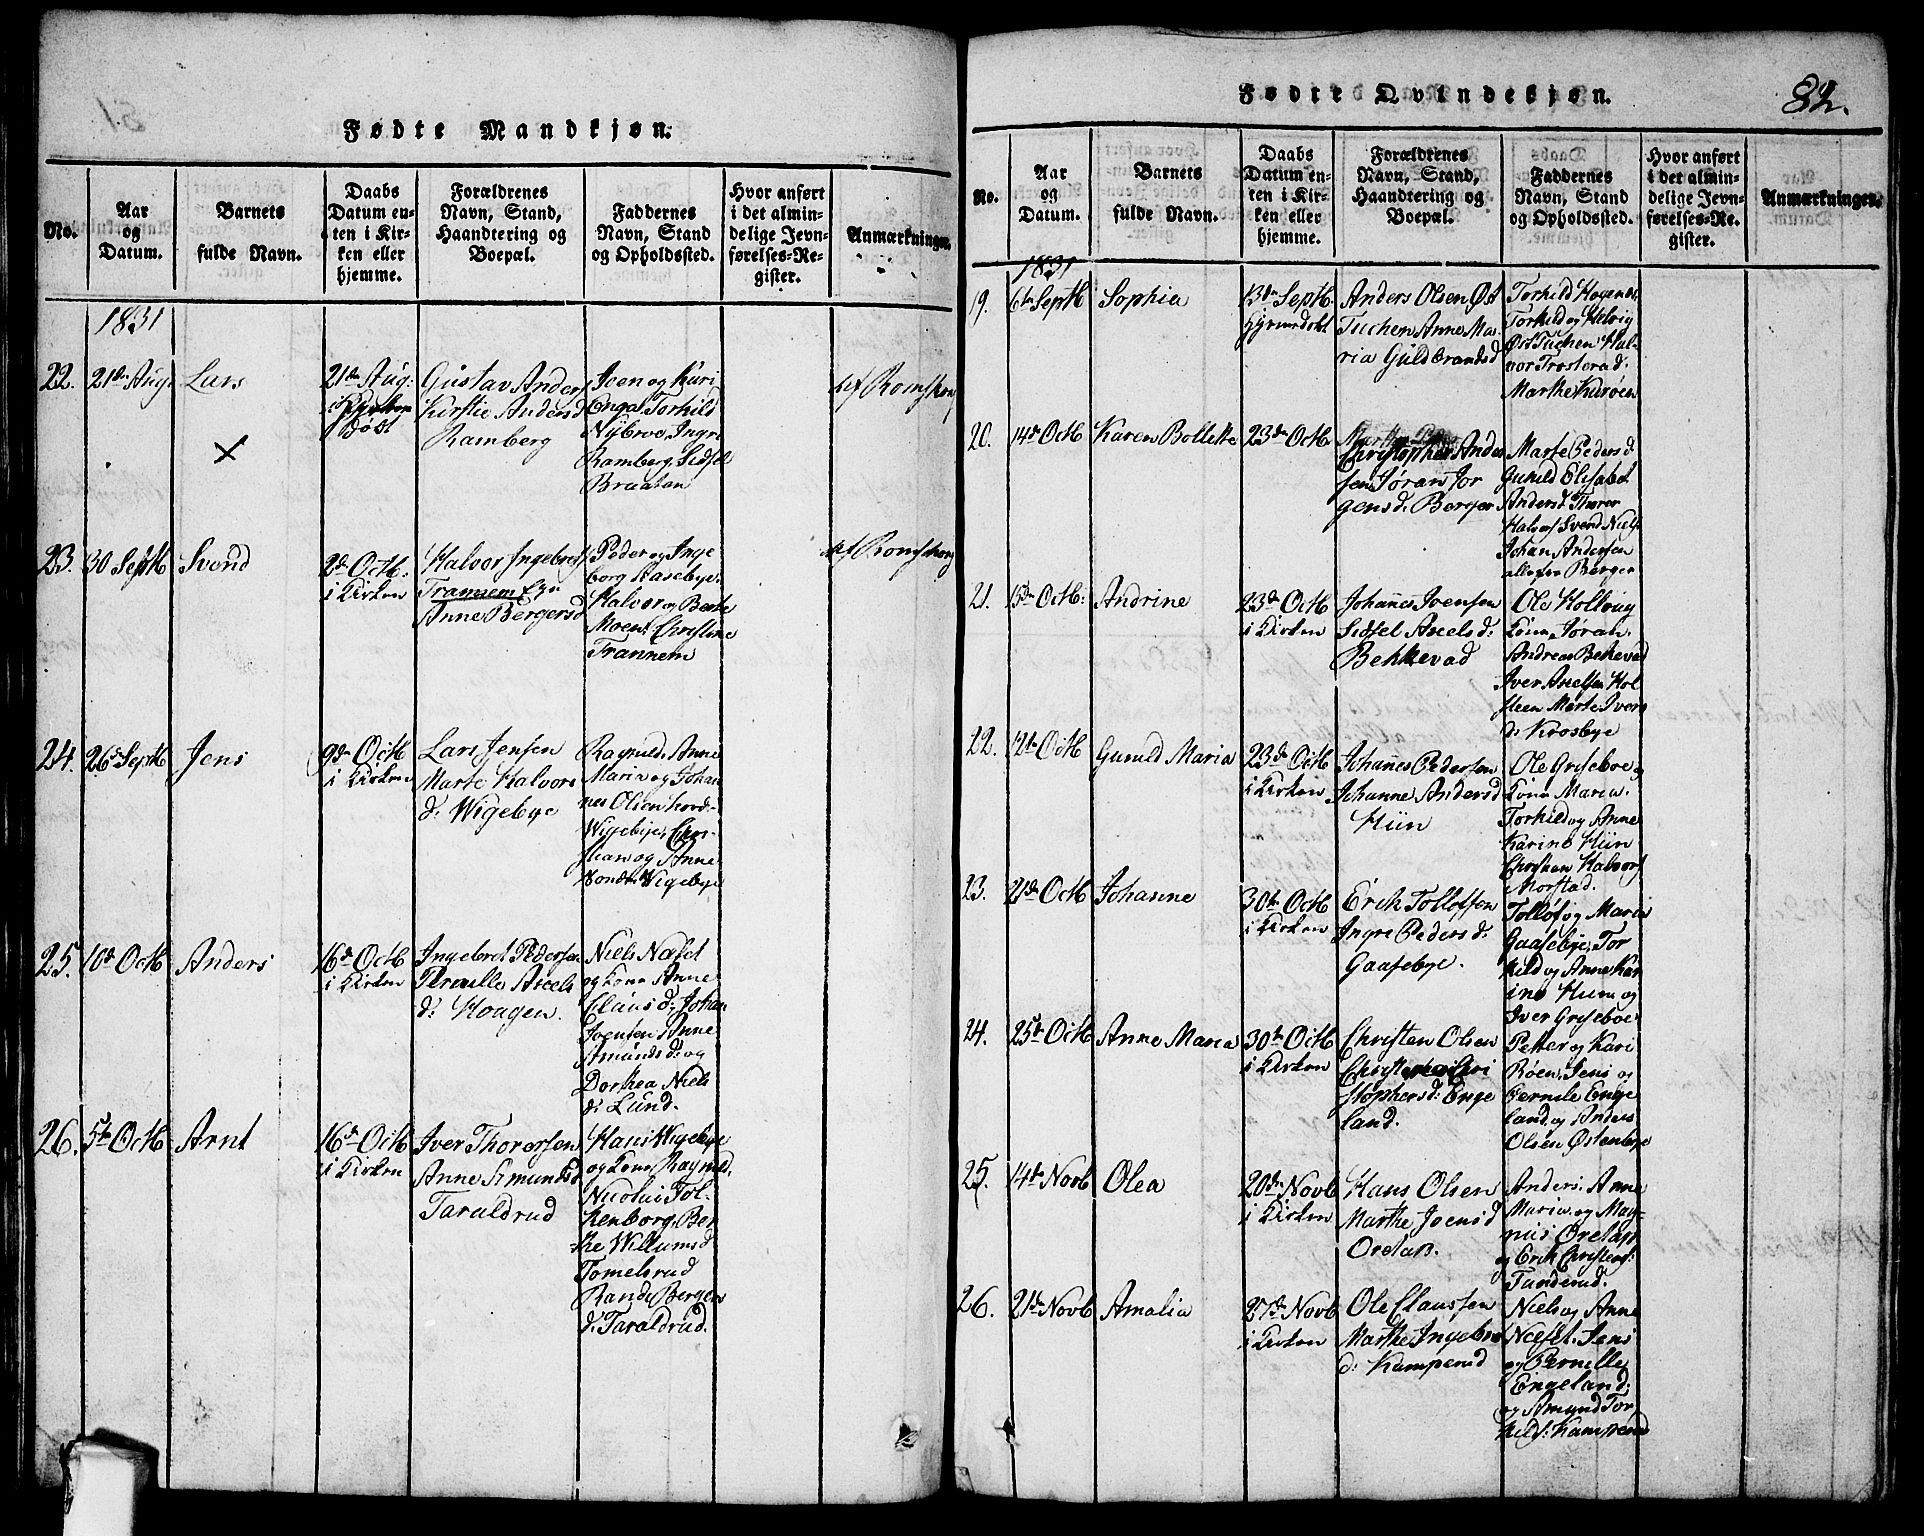 Fødte Mandkjøn.
No.
Aar
og
Datum.
Barnets
fulde Navn.
Daabs
Datum en-
ten i Kir-
ken eller
hjemme.
Forældrenes
Navn, Stand,
Haandtering og
Boepæl.
Faddernes
Navn, Stand
og Opholdssted.
Hvor anført
i det almin-
delige Jevn-
førelses-Re-
gister.
Anmærkninger.
1831
22.
21de Aug:
Lars
21de Aug:
Døbt
Gustav Anders
Kirstie Andersd
Ramberg
Joen og Kari
Enge Torhild
Nÿbroe, Ingri
Ramberg, Sidsel
Braaten
af Romskog
23.
30 Septb
Svend
2de Octb:
i Kirken
Halvor Ingebrets
Trannem
Anne Bergersd
Peder og Inge
borg Stasebye,
Halvor og Berte
Moen, Christine
Trannem
af Romskog
24.
26d Septb
Jens
9de Octb
i Kirken
Lars Jensen
Marte Halvors
d: Wigebye
Ragnild, Anne
Maria og Johan
nes Olsen
Wigebye, Chri-
stian og Anne
Wigebye
25.
10d Octb
Anders
16de Octb
i Kirken
Ingebret Pedersen
Pernille Axels
d: Haagen.
Niels Næset
og Kone Anne
Claus d: Johan
Joensen Anne
Amunds d: og
Dorthea Niels
d: Lund.
26.
5te Octb
Arnt
16de Octb
i Kirken
Iver Thorersen
Anne Amundsd
Taraldrud
Hans Wigebye
og Kone Ragnild,
Nicolai Tol-
kenborg, Ber
the Willumsd
Tomelsrud
Rande Berger
d: Taraldrud.
Fødte Qvindekjøn.
82.
No.
Aar
og
Datum.
Barnets
fulde Navn.
Daabs
Datum en-
ten i Kir-
ken eller
hjemme.
Forældrenes
Navn, Stand,
Haandtering og
Boepæl.
Faddernes
Navn, Stand
og Opholdssted.
Hvor anført
i det almin-
delige Jevn-
førelses-Re-
gister.
Anmærkninger.
1831
19.
6te Septb
Sophia
13de Septb.
Hjemedøbt
Anders Olsen Øst
Tuchen Anne Ma-
ria Guldbrandsd
Torhild Hogenes,
Torhild og Helvig
Øst Tuchen Hal-
vor Trosterud,
Marthe Kurøen
20.
14de Octb
Karen Bollette
23de Octb
Christopher Ander
sen, Jøran Jor
gensd: Berger
Marte Peders d
Gunild Elisabet
Andersd Thorer
Halvors Svend Niels
Johan Andersen
alle fra Berger
21.
15de Octb:
Andrine
23de Octb
i Kirken
Johannes Joensen
Sidsel Axelsd:
Bekkevad
Ole Kollvug
Kone Jøran,
Andreas Bekevad
Iver Axelsen Hol
steen Marte Ivers
d: Krosbye
22.
12te Octb
Gunild Maria
23de Octb
i Kirken
Johannes Pedersen
Johanne Andersd
Hiin
Ole Griseboe og
Kone Maria,
Torhild og Anne
Karine Hiin
Christian Halvors
Morstad.
23.
21de Octb
Johanne
30te Octb
i Kirken
Erik Tollofsen
Ingre Peders d:
Gaasebye.
Tollof og Maria
Gaasebye, Tor
hild og Anne Kar
ine Hiin og
Iver Griseboe
24.
25de Octb
Anne Maria
30te Octb
i Kirken
Christen Olsen
Chri
stophersd: Enge
land.
Petter og Kari
Røen, Jens og
Pernile Enge
land, og Anders
Olsen Østenbye
25.
14de Novb
Olea
20de Novb
i Kirken
Hans Olsen
Marthe Joensd
Oretap.
Anders, Anne
Maria, og Mag-
nus Øretap
og Erik Christens:
Tunderud.
26.
21de Novb
Amalia
27de Novb
i Kirken
Ole Claussen
Marthe Ingebrets
d: Kamperud
Niels og Anne
Næset. Jens
og Pernille
Engeland;
og Amund Tor
kilds: Kamperud